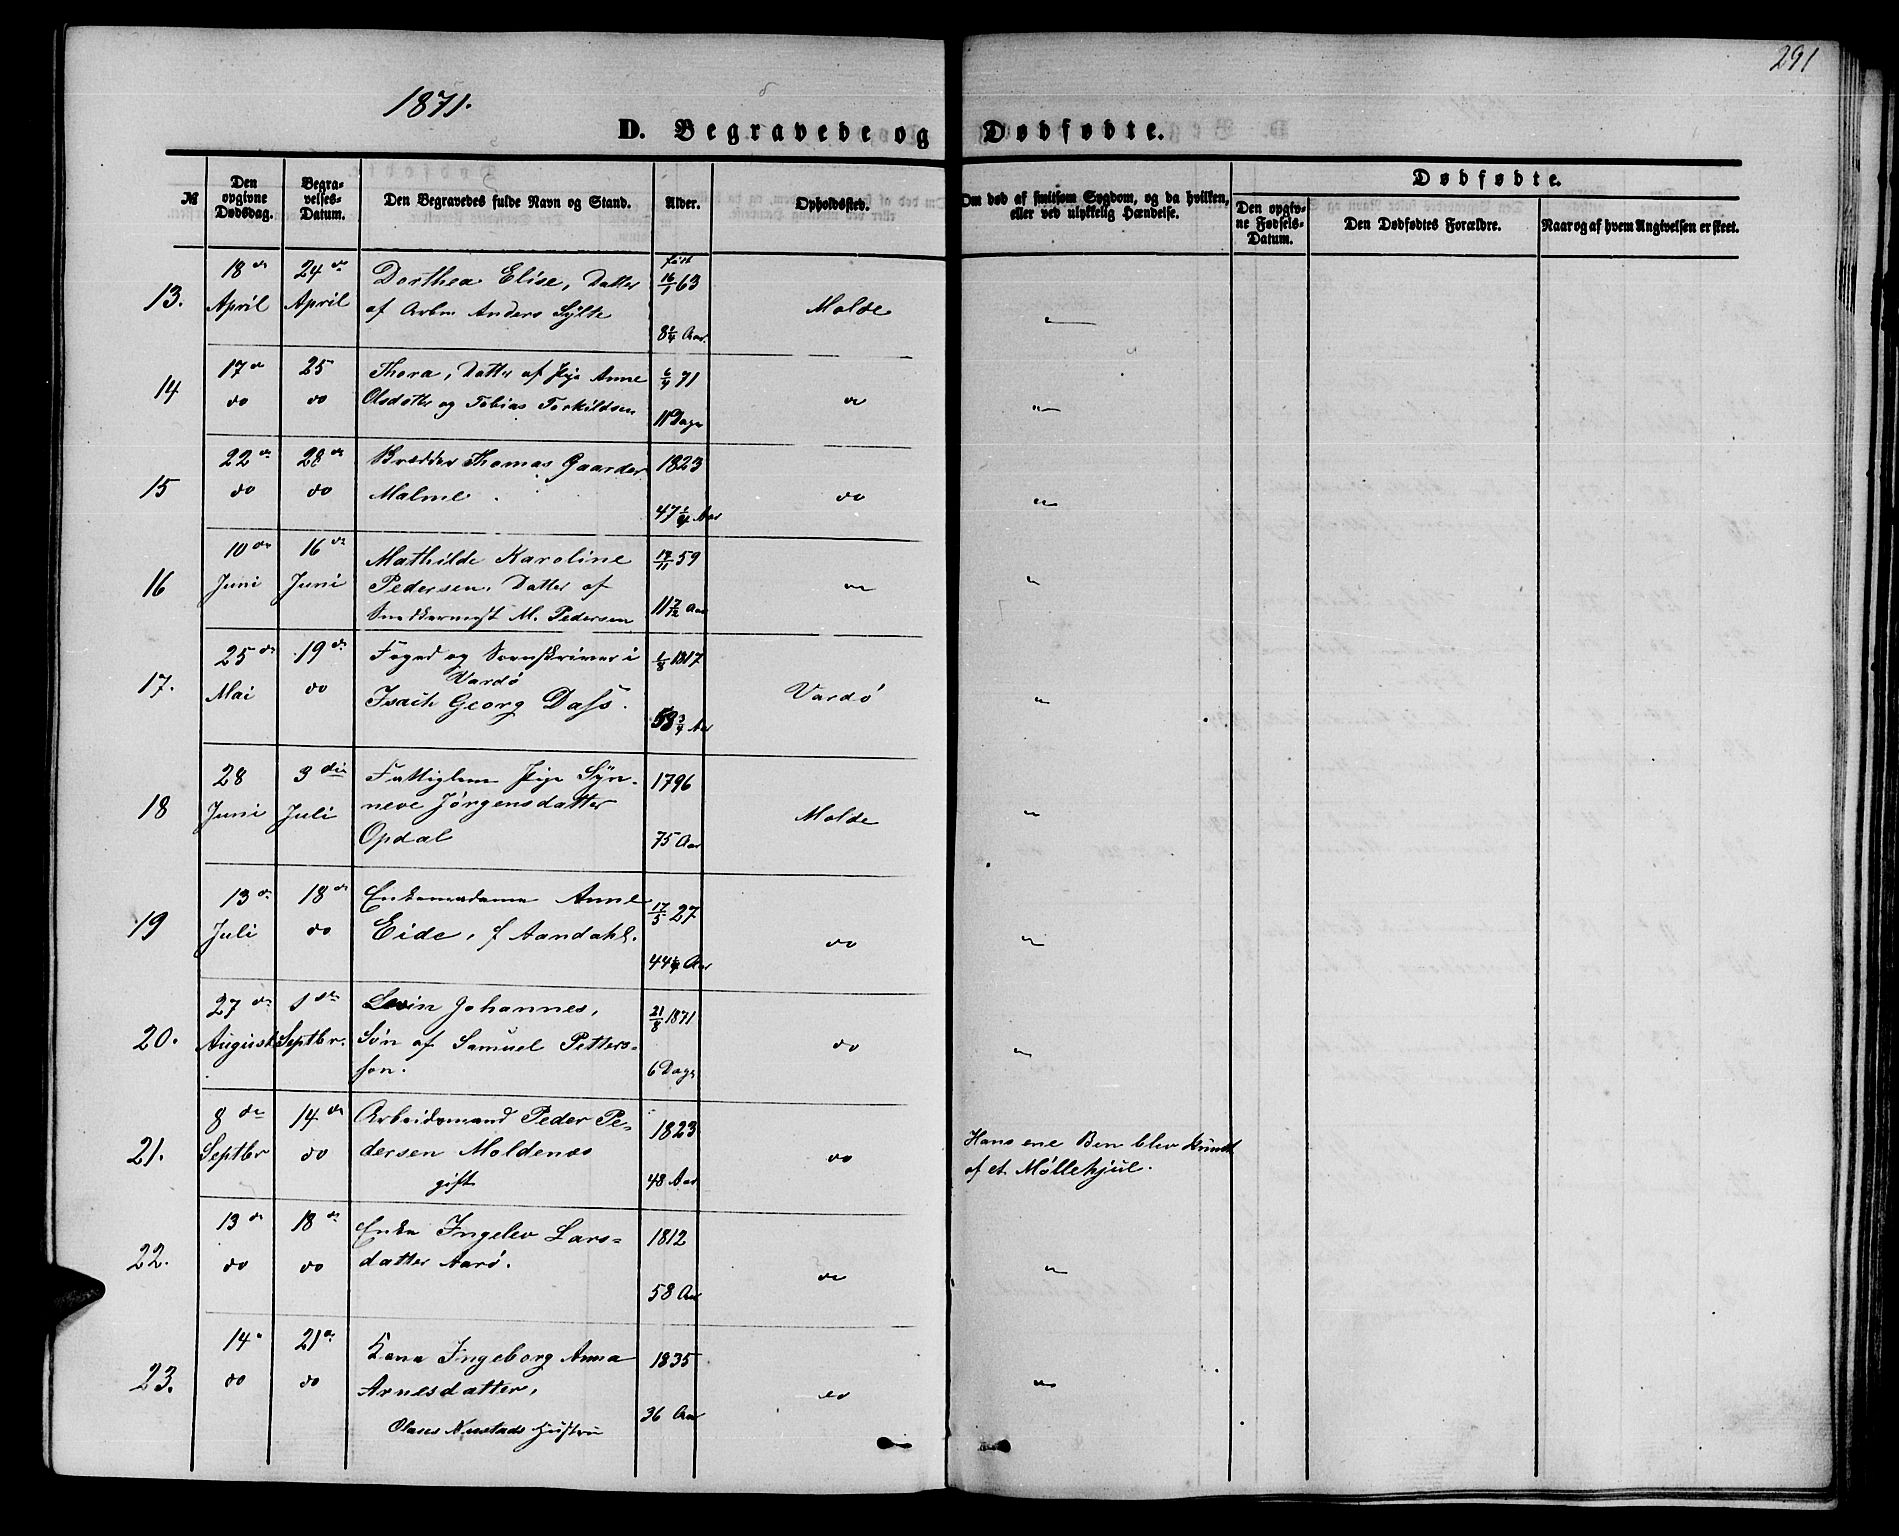 291
1871.
D. Begravede og Dødfødte.
№
Den opgivne Dødsdag.
Begravelses-Datum.
Den Begravedes fulde Navn og Stand.
Alder.
Opholdssted.
Om død af smitsom Sygdom, og da hvilken, eller ved ulykkelig Hændelse.
Dødfødte.
Den opgivne Fødsels-Datum.
Den Dødfødtes Forældre.
Naar og af hvem Angivelsen er skeet.
13.
18de April
24de April
Dorthea Elise, Datter
af Arbm Anders Sylte
født 16/1 63
8 1/4 Aar
Molde
"
14
17de do
25 do
Thora, Datter af Pige Anne
Olsdatter og Tobias Torkildsen
6/4 71
11 Dage
do
"
15
22de do
28de do
Thomas Gaarder
Malme
1823
47 1/4 Aar
do
"
16
10de Juni
16de Juni
Mathilde Karoline
Pedersen, Datter af
Snedkermest M. Pedersen
17/11 59
11 7/12 Aar
do
"
17.
25de Mai
19de do
Foged og Sorenskriver i
Vardø
Isach Georg Dass.
1/8 1817
53 3/4 Aar
Vardø
"
18
28 Juni
3die Juli
Fattiglem Pige Syn-
neve Jørgensdatter
Opdal
1796
75 Aar
Molde
"
19
13de Juli
18de do
Enkemadame Anne
Eide, f Aandahl.
17/5 27
44 1/4 Aar
do
"
20.
27de August
1ste Septbr.
Levin Johannes,
Søn af Samuel Petters-
son.
21/8 1871
6 Dage
do
"
21.
8de Septbr
14de do
Arbeidsmand Peder Pe-
dersen Moldenæs
gift
1823
48 Aar
do
Hans ene Ben blev knust
af et Møllehjul.
22.
13de do
18de do
Enke Ingelev Lars-
datter Aarø.
1812
58 Aar
do
"
23.
14de do
21de do
Kone Ingeborg Anna
Arnesdatter,
Olaus Nerstads Hustru
1835
36 Aar
do
"